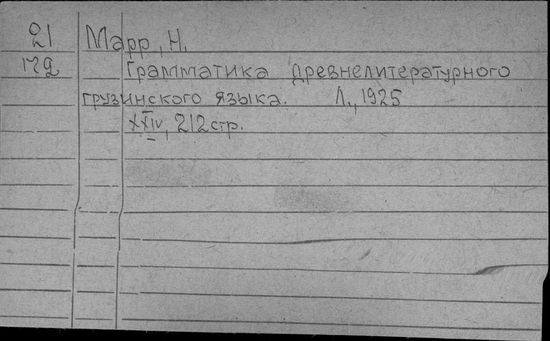 21 Марр, Н.
172 Грамматика древнелитературного
грузинского языка. Л., 1925
XXIV, 212 стр.